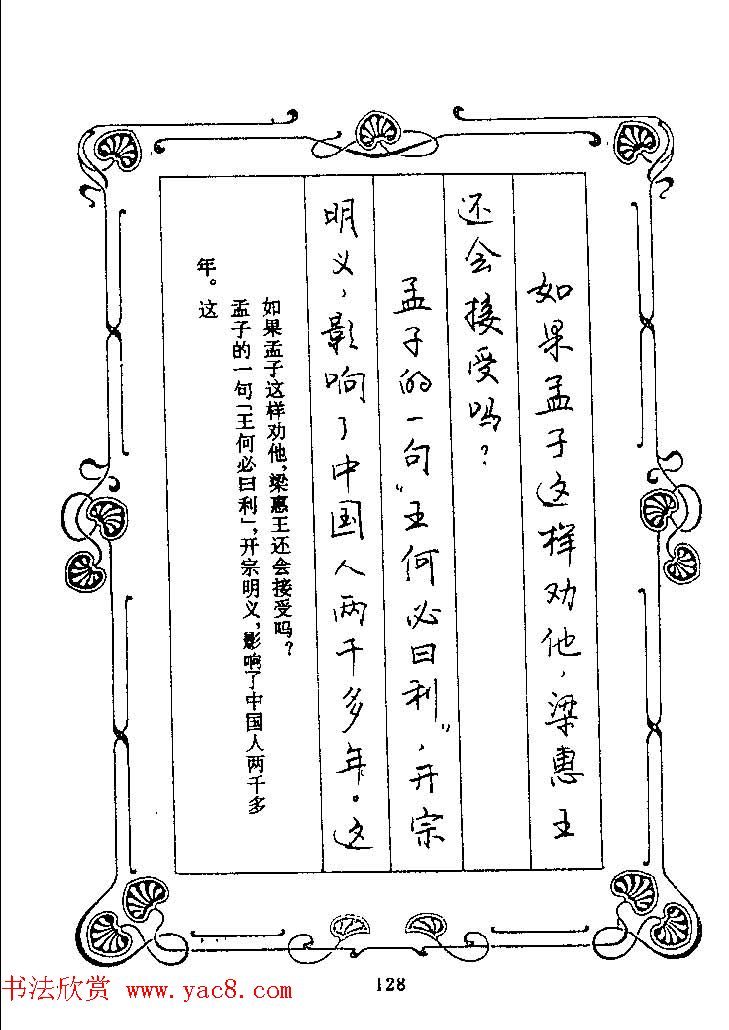 如果孟子这样劝他，梁惠王
还会接受吗？
孟子的一句“王何必曰利”，开宗
明义，影响了中国人两千多年。这
如果孟子这样劝他，梁惠王还会接受吗？
孟子的一句「王何必曰利」，开宗明义，影响了中国人两千多
年。这
128
书法欣赏 www.yac8.com